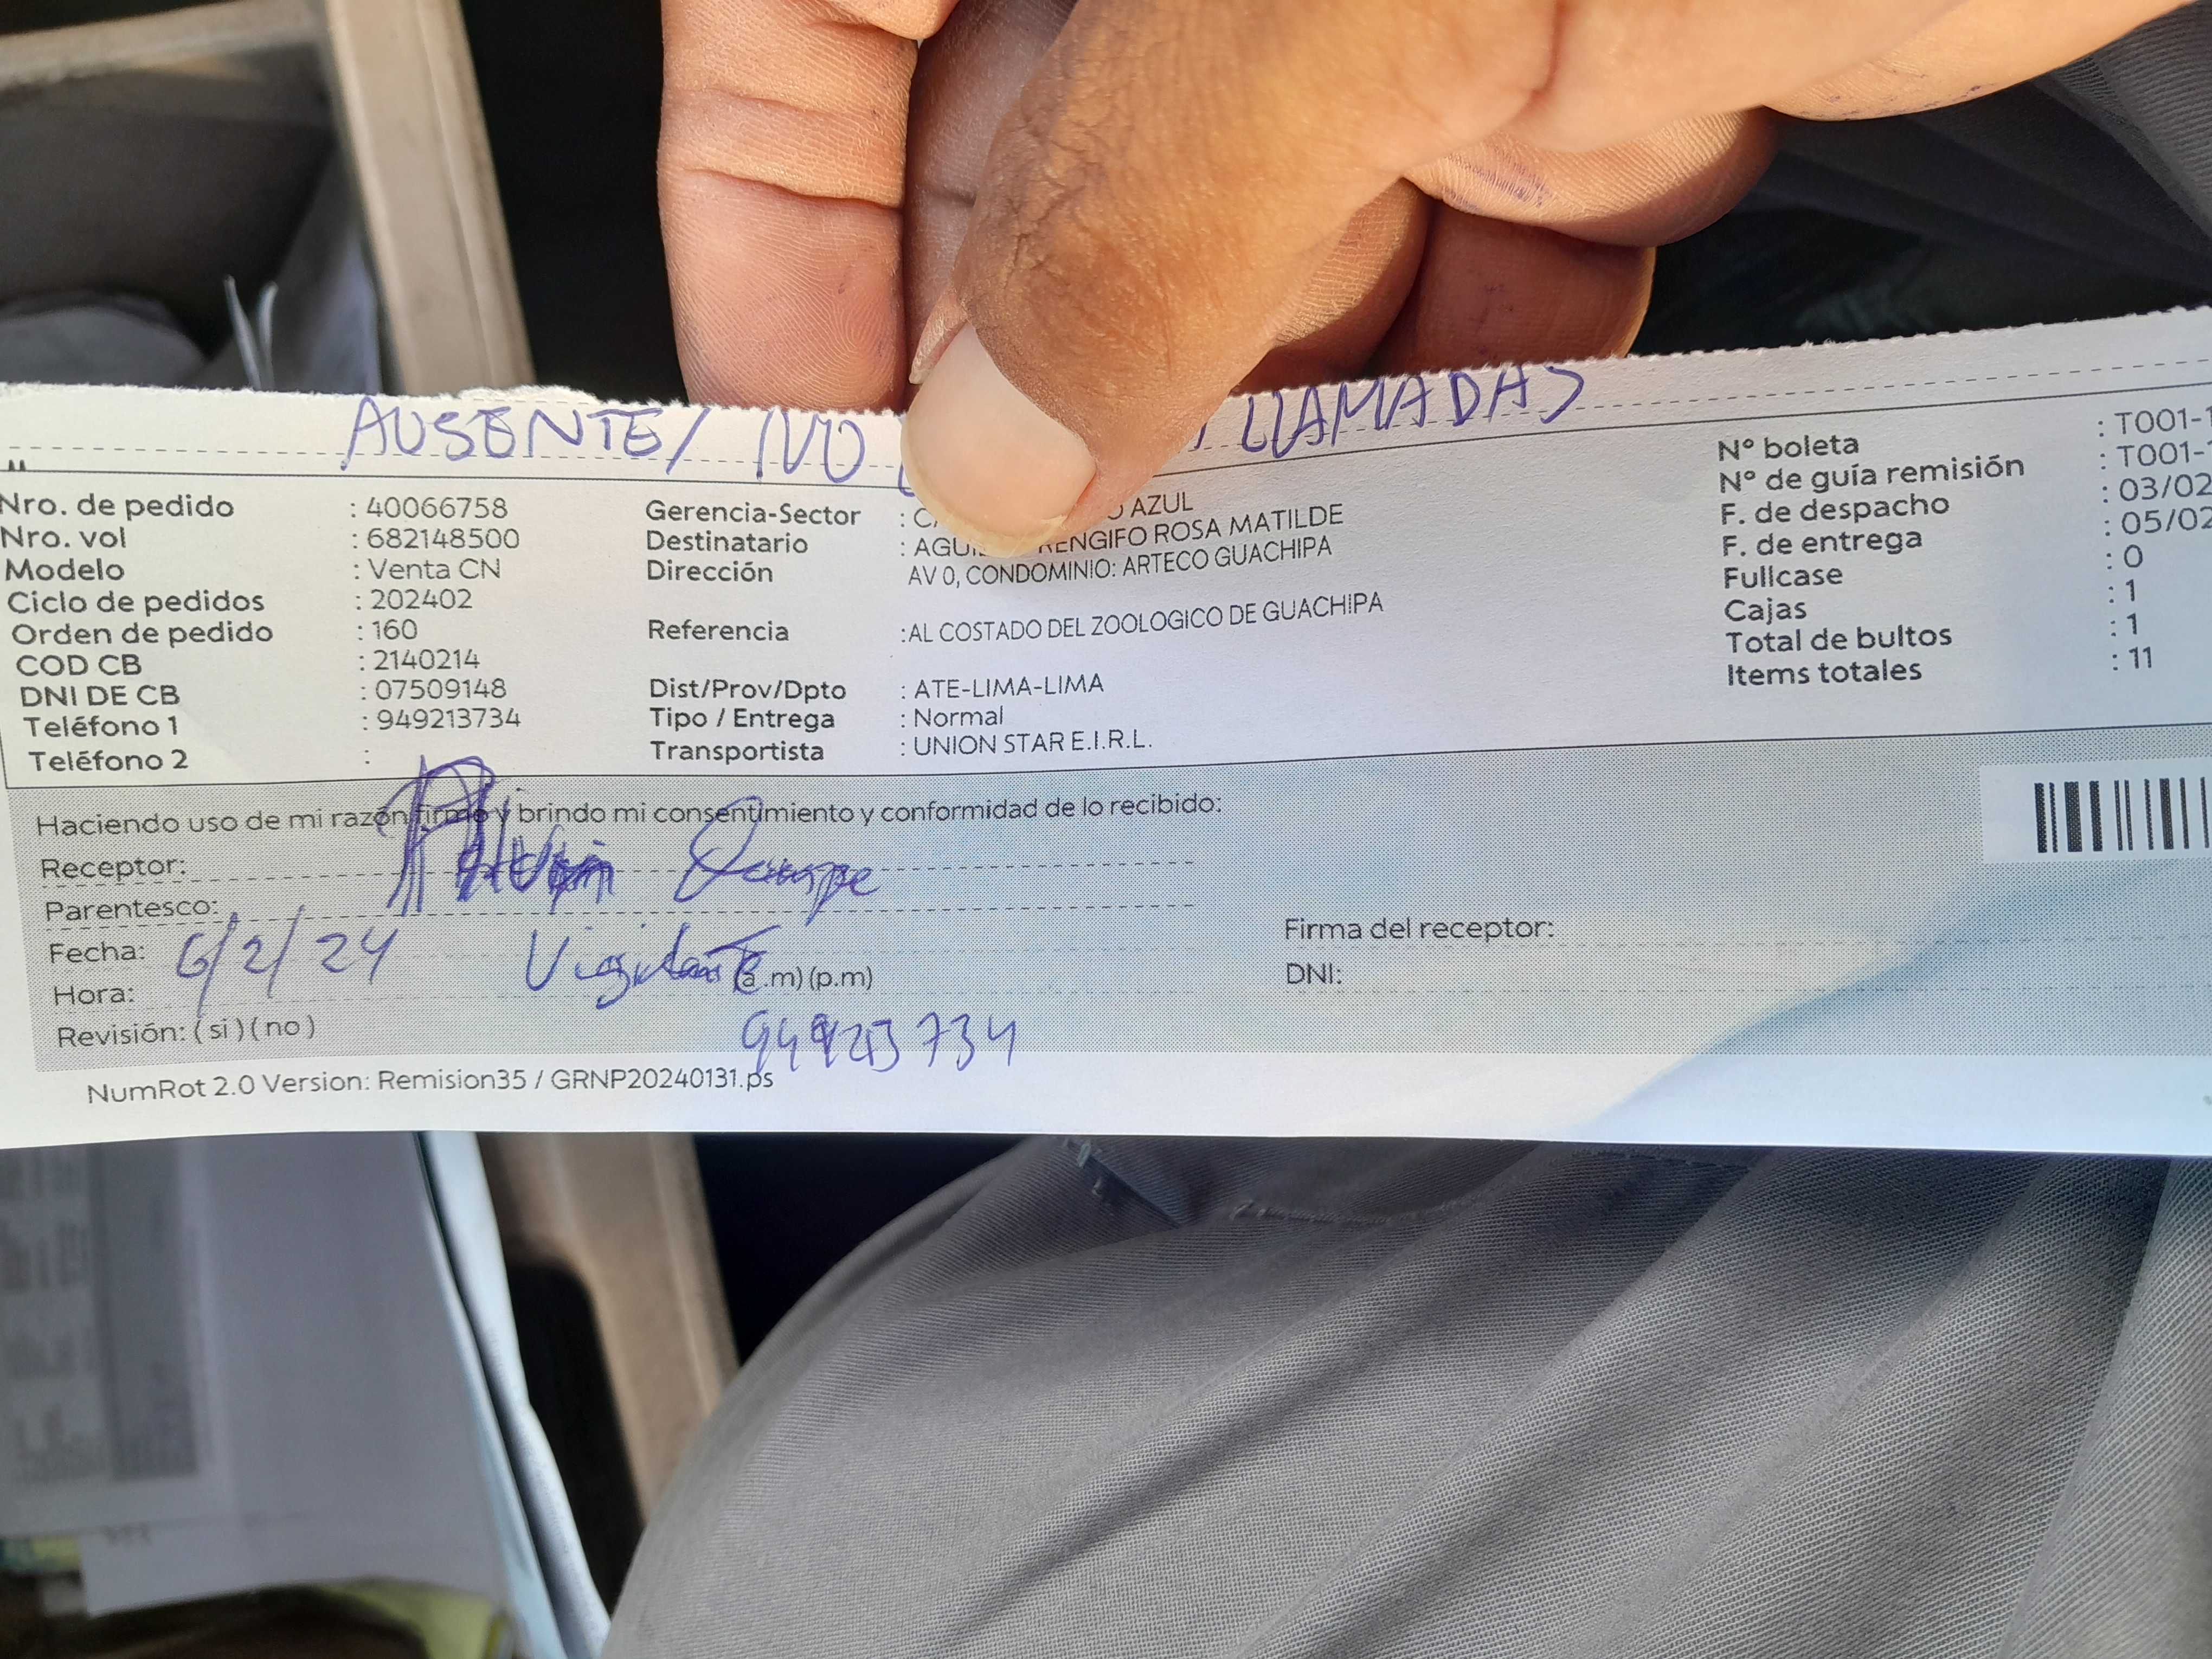 AUSENTE/ NO LLAMADAS
Nro. de pedido : 40066758
Nro. vol : 682148500
Modelo : Venta CN
Ciclo de pedidos : 202402
Orden de pedido : 160
COD CB : 2140214
DNI DE CB : 07509148
Teléfono 1 : 949213734
Teléfono 2 :
Gerencia-Sector : AZUL
Destinatario : RENGIFO ROSA MATILDE
Dirección AV 0, CONDOMINIO: ARTECO GUACHIPA
Referencia :AL COSTADO DEL ZOOLOGICO DE GUACHIPA
Dist/Prov/Dpto : ATE-LIMA-LIMA
Tipo / Entrega : Normal
Transportista : UNION STAR E.I.R.L.
Nº boleta : T001-1
Nº de guía remisión : T001-
F. de despacho : 03/02
F. de entrega : 05/02
Fullcase : 0
Cajas : 1
Total de bultos : 1
Items totales : 11
Haciendo uso de mi razón firmo y brindo mi consentimiento y conformidad de lo recibido:
Receptor:
Parentesco:
Fecha: 6/2/24 Vigilante
Hora: (a.m) (p.m)
Revisión: ( si ) ( no )
949213734
Firma del receptor:
DNI:
NumRot 2.0 Version: Remision35 / GRNP20240131.ps